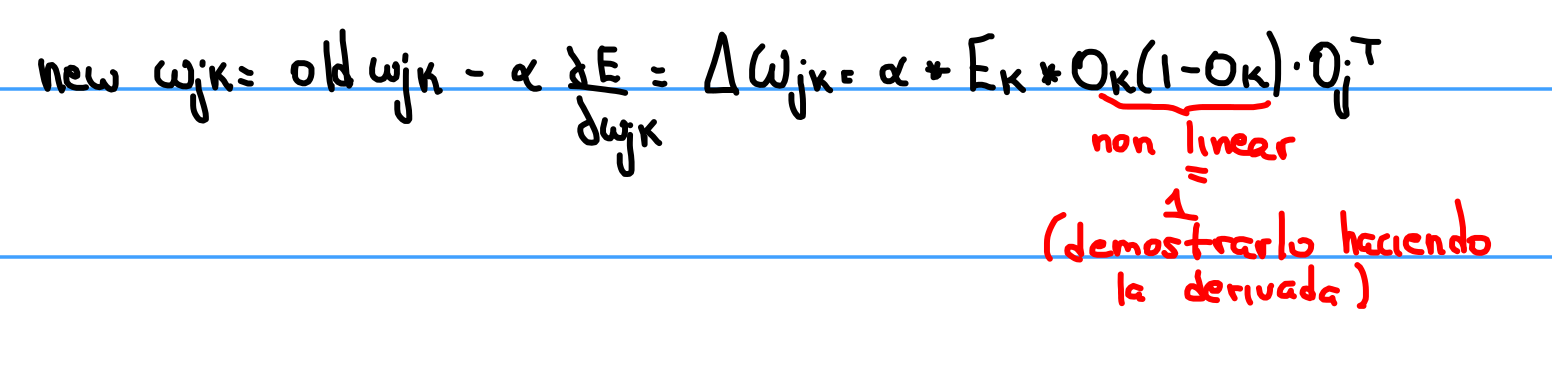 new wjk = old wjk - α ∂E/∂wjk = Δwjk = α * Ek * Ok(1-Ok) · Oj^T
non linear
=
1
(demostrarlo haciendo
la derivada)